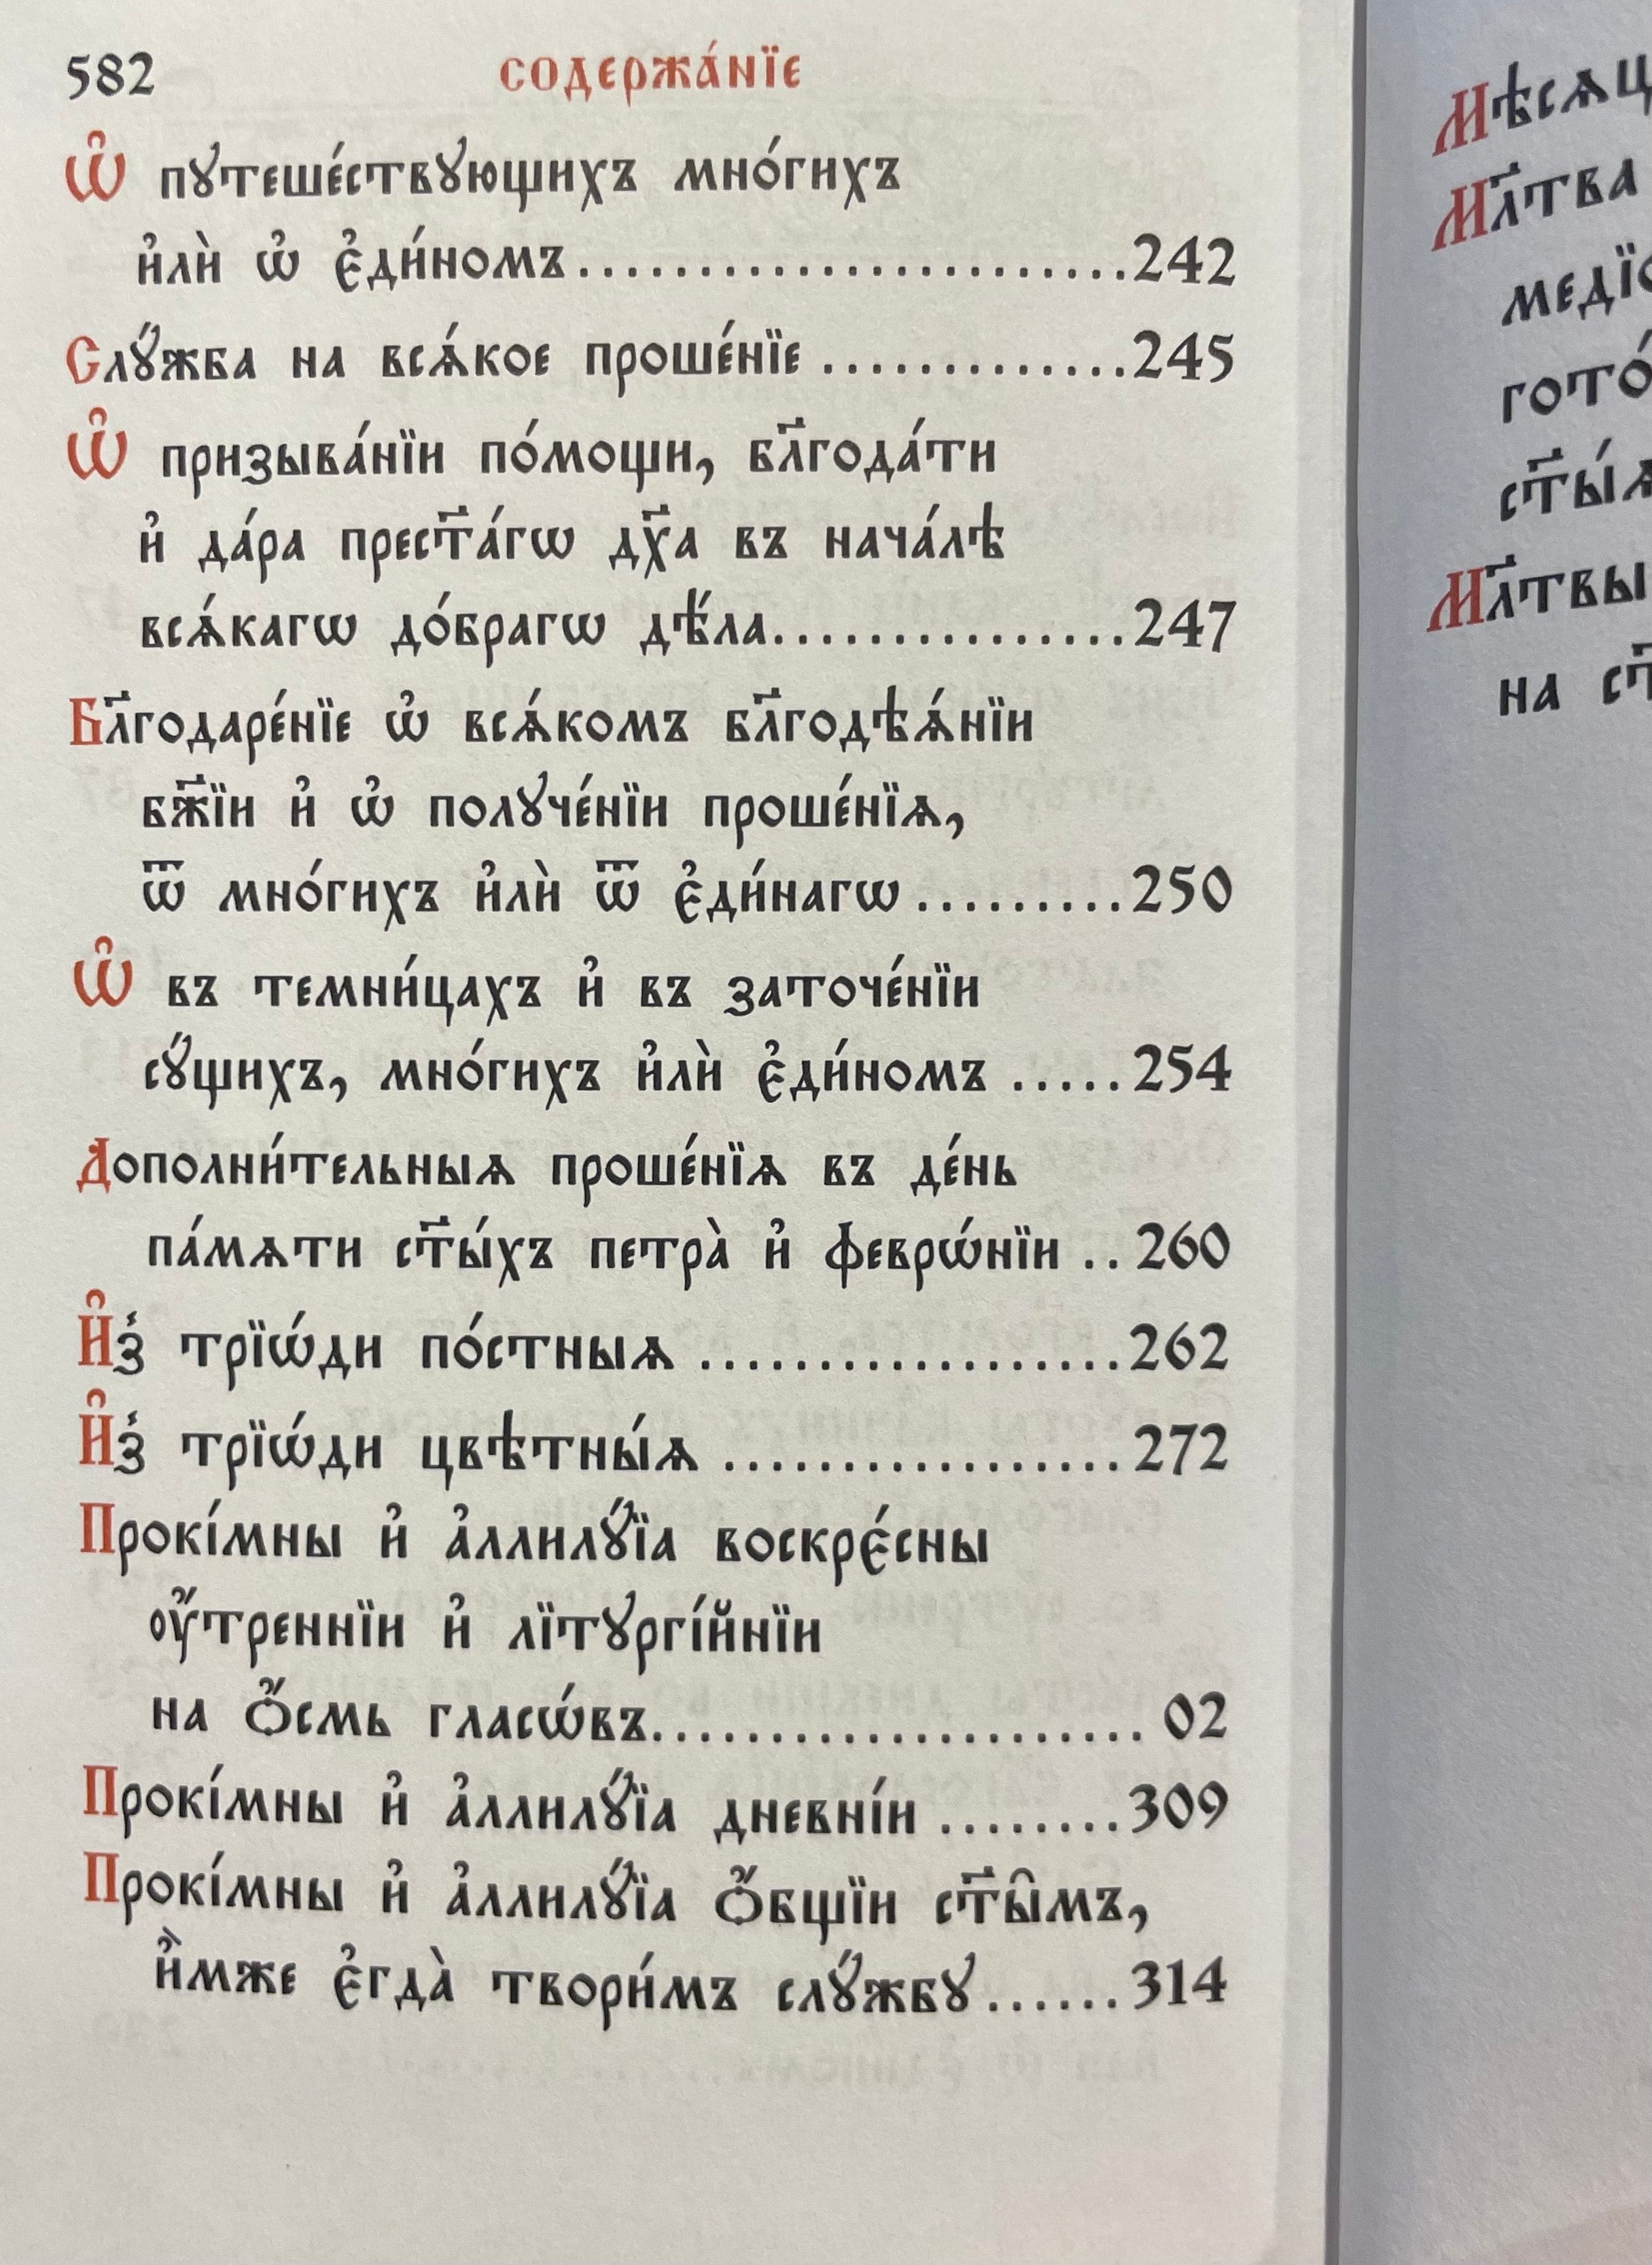 582 содержа́нїе
Ѽ пꙋтеше́ствꙋющихъ мно́гихъ
и҆лѝ ѡ҆ є҆ди́номъ.......................242
Слꙋ́жба на всѧ́кое проше́нїе .............245
Ѽ призыва́нїи по́мощи, бл҃года́ти
и҆ да́ра прест҃а́гѡ дх҃а въ нача́лѣ
всѧ́кагѡ до́брагѡ дѣ́ла...............247
Бл҃годаре́нїе ѡ҆ всѧ́комъ бл҃годѣѧ́нїи
бж҃їи и҆ ѡ҆ полꙋче́нїи проше́нїѧ,
ѿ мно́гихъ и҆лѝ ѿ є҆ди́нагѡ .........250
Ѽ въ темни́цахъ и҆ въ заточе́нїи
сꙋ́щихъ, мно́гихъ и҆лѝ є҆ди́номъ .....254
Дополни́тельныѧ проше́нїѧ въ де́нь
па́мѧти ст҃ы́хъ петра̀ и҆ феврѡ́нїи ..260
И҆з̾ трїѡ́ди по́стныѧ ..................262
И҆з̾ трїѡ́ди цвѣтны́ѧ .................272
Прокі́мны и҆ а҆ллилꙋ́їа воскрє́сны
ѹ҆́треннїи и҆ лїтꙋргі́йнїи
на ѻ҆́смь гласѡ́въ..................... 02
Прокі́мны и҆ а҆ллилꙋ́їа дневні́и ........309
Прокі́мны и҆ а҆ллилꙋ́їа ѻ҆́бщїи ст҃ы̑мъ,
и҆̀мже є҆гда̀ твори́мъ слꙋ́жбꙋ......314
Мл҃тва
Мл҃твы
на